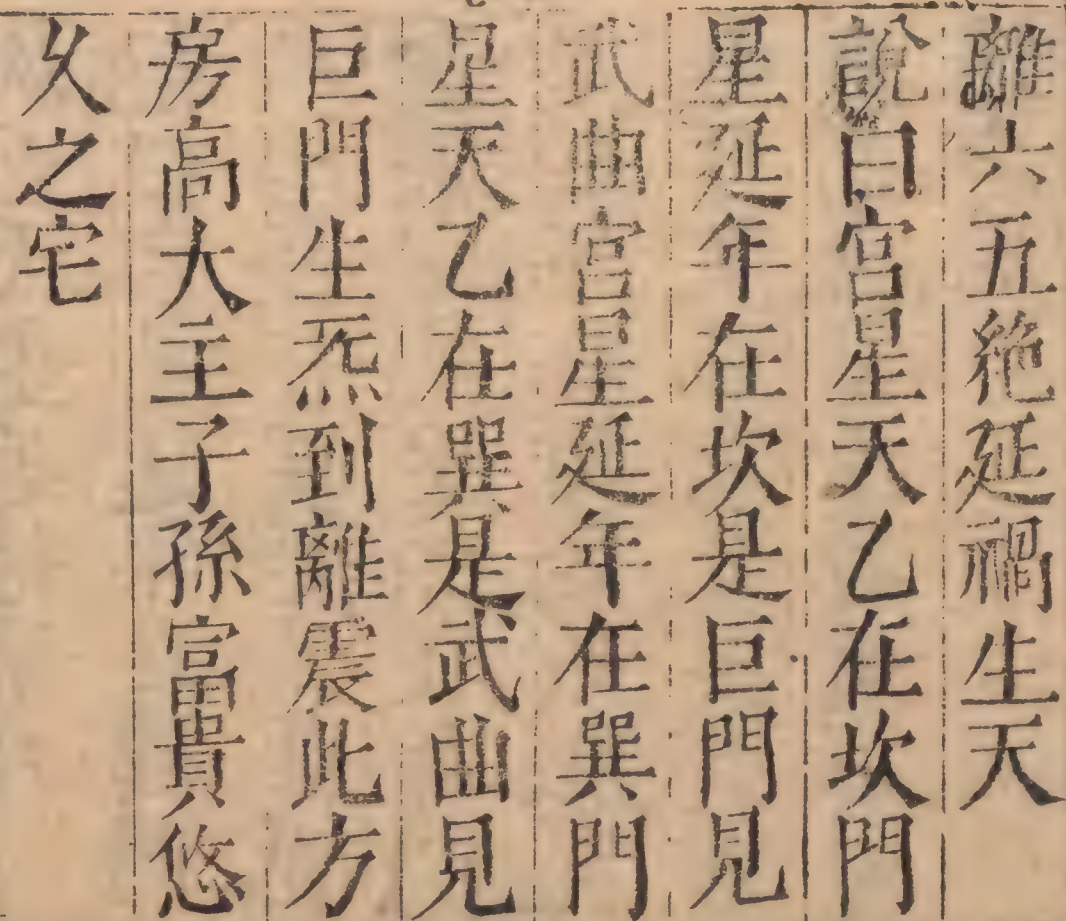 離六五絶延禍生天
說曰宫星天乙在坎門
星延年在坎是巨門見
武曲宫星延年在巽門
星天乙在巽是武曲見
巨門生炁到離震此方
房高大主子孫富貴悠
久之宅